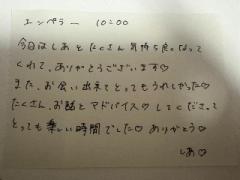 エンペラー 10:00
今日はしあとたくさん気持ち良くなって
くれて、ありがとうございます♡
また、お会い出来てとってもうれしかった♡
たくさん、お話とアドバイス♡してくださって
とっても楽しい時間でした♡ありがとう♡
しあ♡